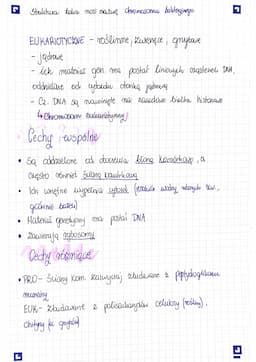 Struktura która nosi nazwę chromosomu bakteryjnego
EUKARIOTYCZNE - roślinne, zwierzęce, grzybowe
- jądrowe
- ich materiał gen. ma postać liniowych cząsteczek DNA,
oddzielone od cytozolu otoczką jądrową
- Cz. DNA są nawinięte na zasadowe białka histonowe
↳ Chromosom eukariotyczny
Cechy wspólne
• Są oddzielone od otoczenia błoną komórkową, a
często również ścianą komórkową
• Ich wnętrze wypełnia cytozol (roztwór wodny różnych
głównie białek)
• Materiał genetyczny ma postać DNA
• Zawierają rybosomy
Cechy różniące
• PRO - Ściany kom. zbudowane z peptydoglikanu
mureiny
EUK - Zbudowane z polisacharydów celulozy (rośliny),
chityny (u grzybów)